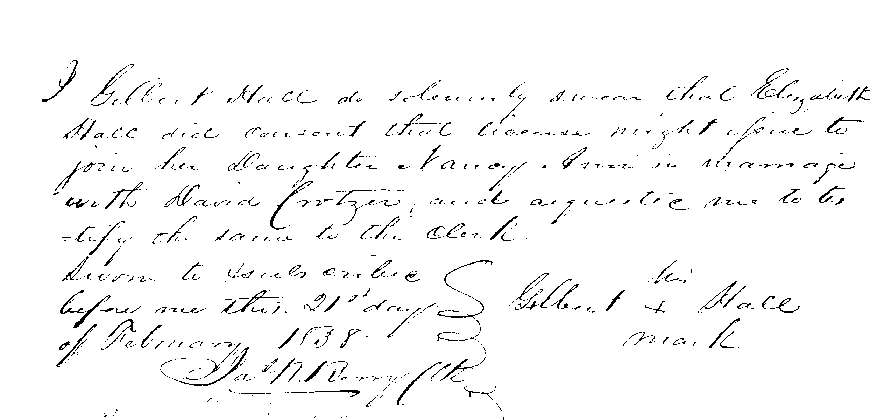 I Gilbert Hall do solemnly swear that Elizabeth
Hall did consent that license might issue to
join her Daughter Nancy Ann in marriage
with David Crotzer, and requested me to tes
-tify the same to the Clerk.
Sworn to & subscribed
before me this 21st day
of February 1838.
Gilbert his x mark Hall
Jas R. Berry Clk